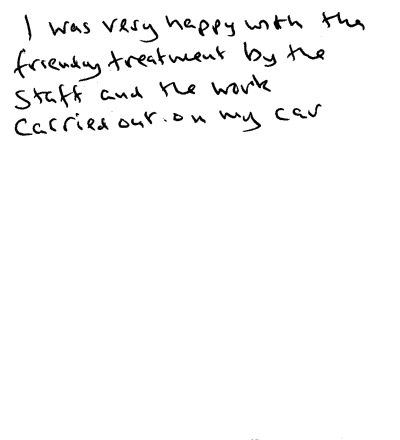 I was very happy with the
friendly treatment by the
staff and the work
carried out. on my car